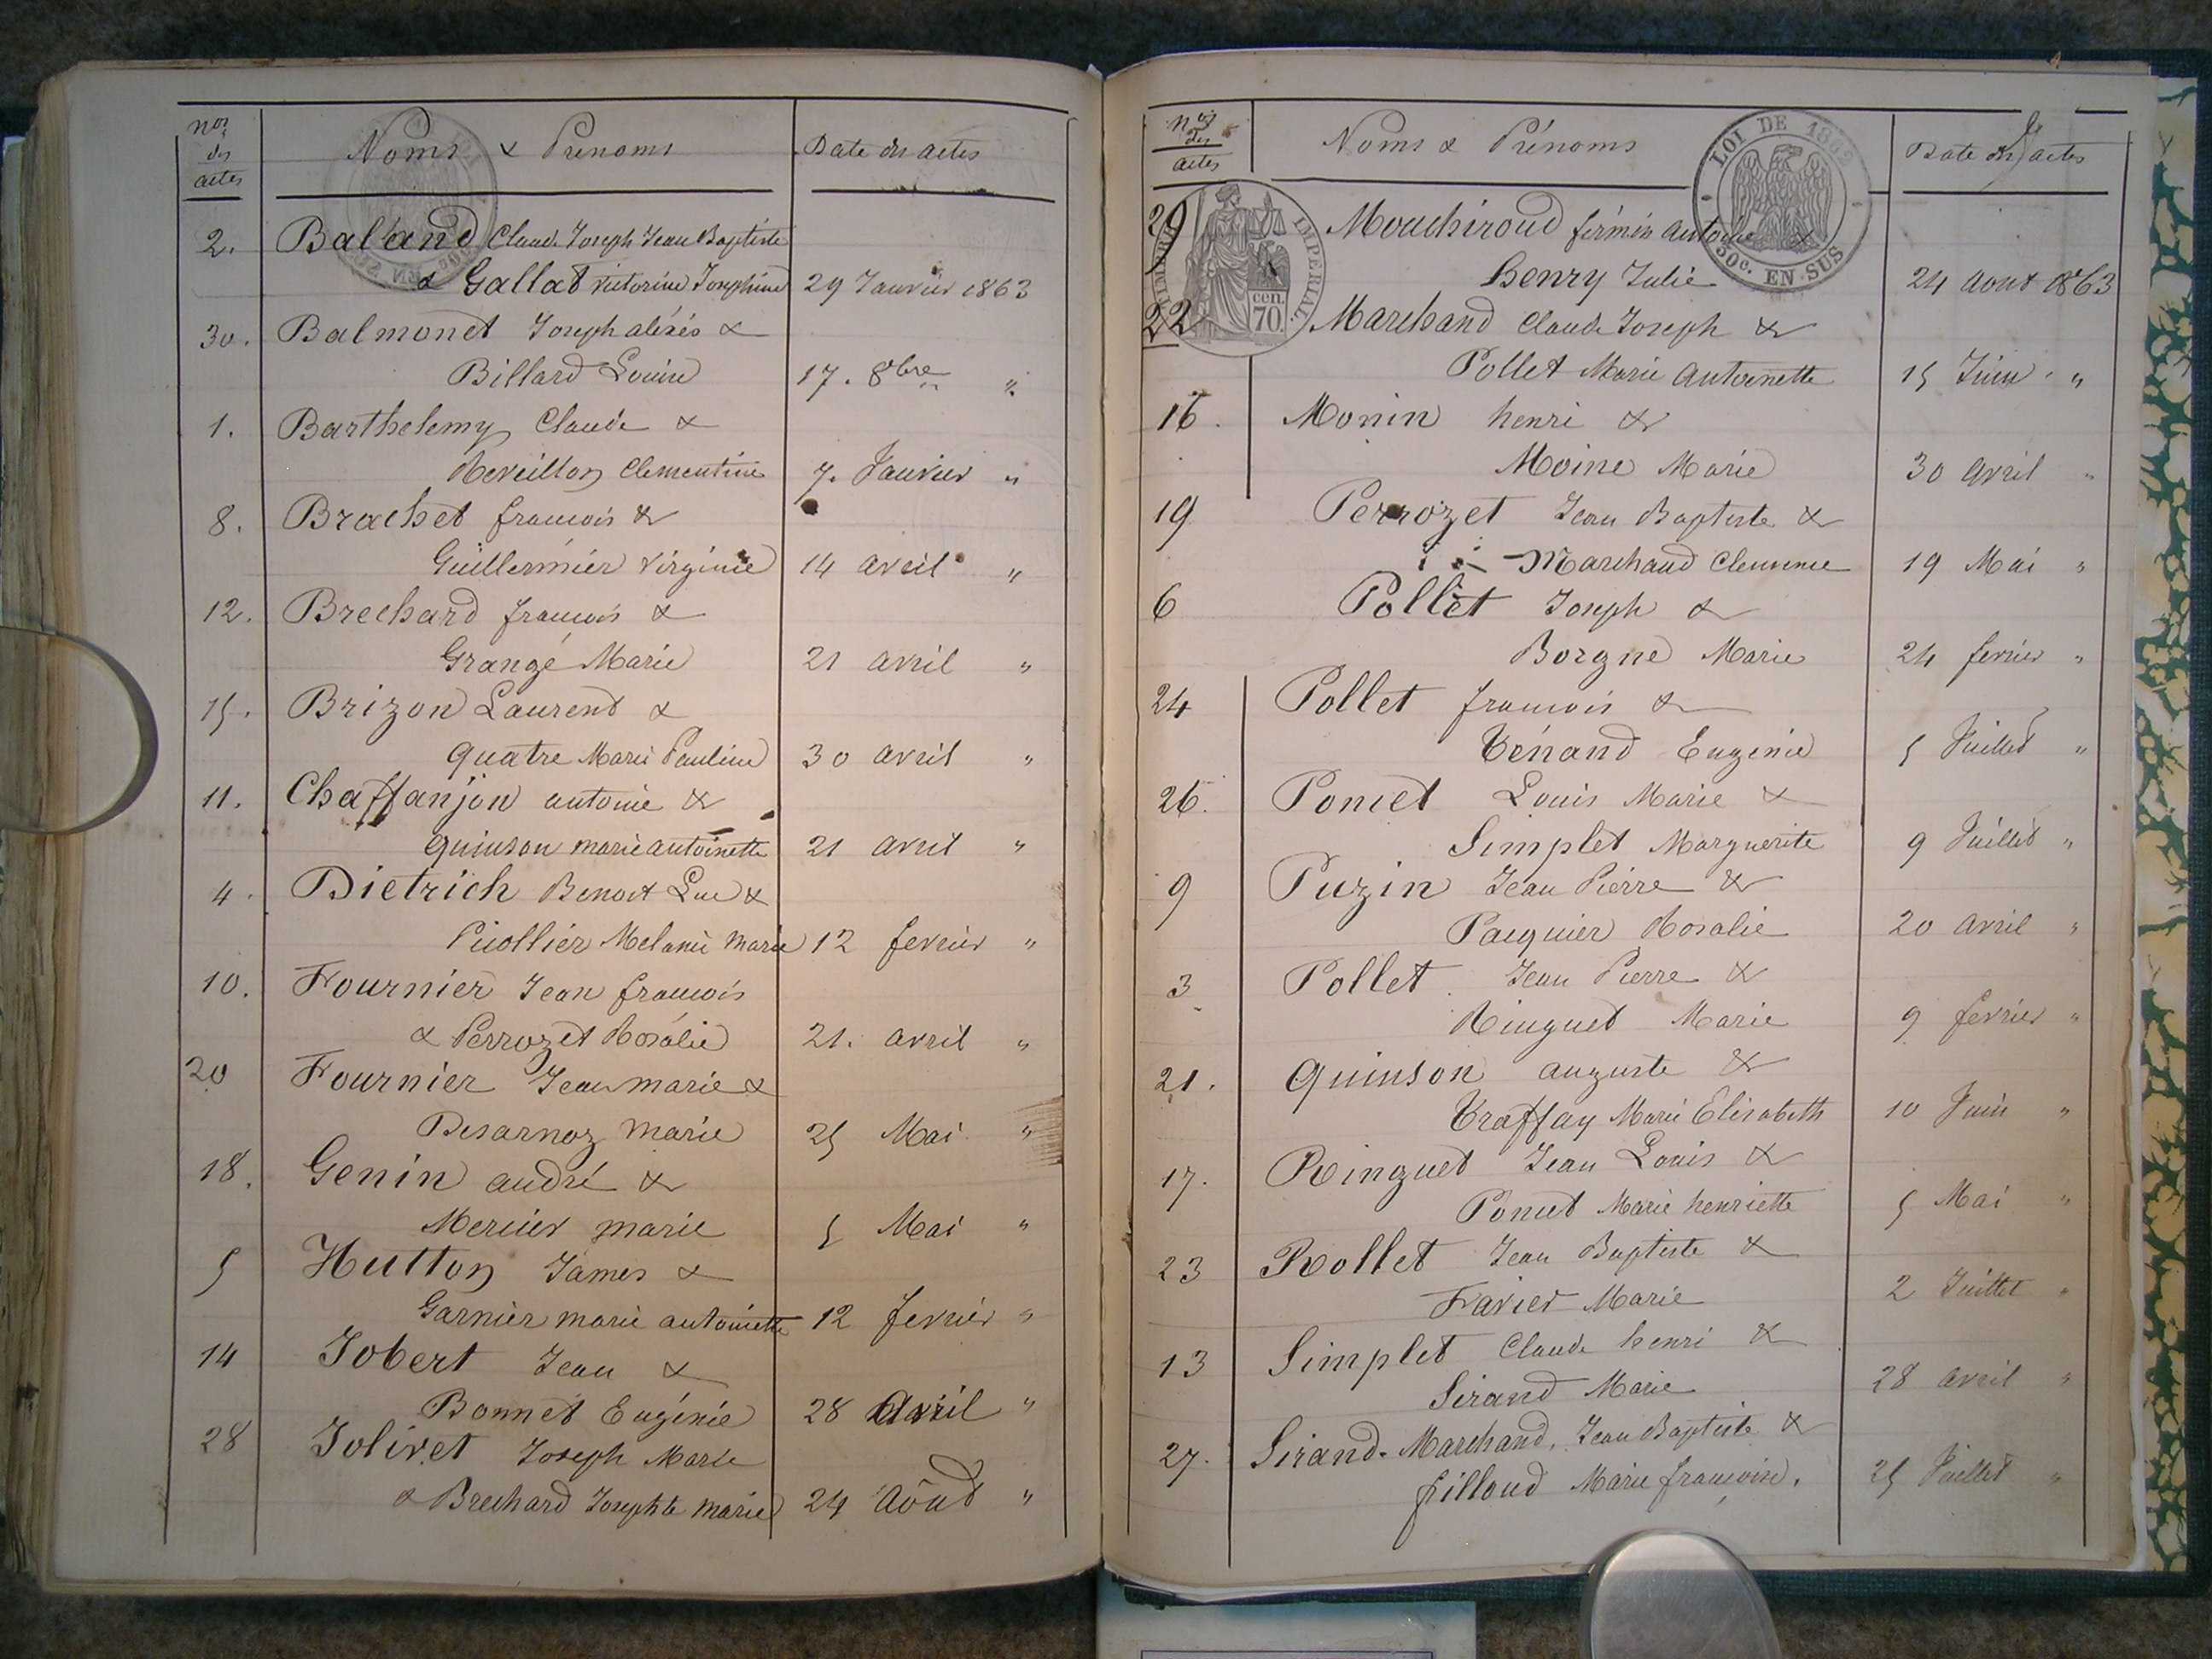 Nos des actes
Noms & Prénoms
Date des actes
2. Baland Claude Joseph Jean Baptiste
& Gallat victorine Josephine 29 Janvier 1863
30. Balmonet Joseph aléxis &
Billard Louise 17. 8bre "
1. Barthelemy Claude &
Reveillon Clementine 7. Janvier "
8. Brachet francois &
Guillermier virginie 14 avril "
12. Brechard francois &
Grangé Marie 21 avril "
15. Brizon Laurent &
quatre Marie Pauline 30 avril "
11. Chaffanjon antoine &
quinson marie antoinette 21 avril "
4. Dietrich Benoit Luc &
Puollier Melanie marie 12 fevrier "
10. Fournier Jean francois
& Perrozet Rosalie 21. avril "
20 Fournier Jean marie &
Desarnoz marie 25 Mai "
18. Genin andré &
Mercier marie 5 Mai "
5 Hutton James &
Garnier marie antoinette 12 fevrier "
14 Jobert Jean &
Bonnet Eugénie 28 avril "
28 Jolivet Joseph Marie
& Brechard Josephte marie 24 Août "
Nos des actes
Noms & Prénoms
Date des actes
LOI DE 1862
50c. EN SUS
TIMBRE IMPERIAL
cen. 70.
29 Mouchiroud firmin Antoine &
Henry Julie 24 aout 1863
22 Marchand Claude Joseph &
Pollet Marie Antoinette 15 Juin "
16. Monin henri &
Moine Marie 30 avril "
19 Perrozet Jean Baptiste &
Marchand Clemence 19 Mai "
6 Pollet Joseph &
Borgne Marie 24 fevrier "
24 Pollet francois &
Ténand Eugenie 5 Juillet "
26. Poncet Louis Marie &
Simplet Marguerite 9 Juillet "
9 Puzin Jean Pierre &
Pacquier Rosalie 20 avril "
3 Pollet Jean Pierre &
Ringuet Marie 9 fevrier "
21. quinson auguste &
Traffay Marie Elisabeth 10 Juin "
17. Ringuet Jean Louis &
Poncet Marie henriette 5 Mai "
23 Rollet Jean Baptiste &
Favier Marie 2 Juillet "
13 Simplet Claude henri &
Sirand Marie 28 avril "
27. Sirand-Marchand, Jean Baptiste &
filloud Marie francoise. 25 Juillet "